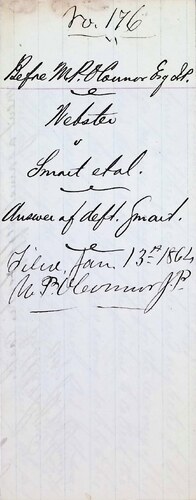 No. 176
Before M.P. O'Connor Esq J.P.
Webster
v
Smart et al.
Answer of deft. Smart.
Filed, Jan. 13th 1864
M. P. O'Connor J.P.